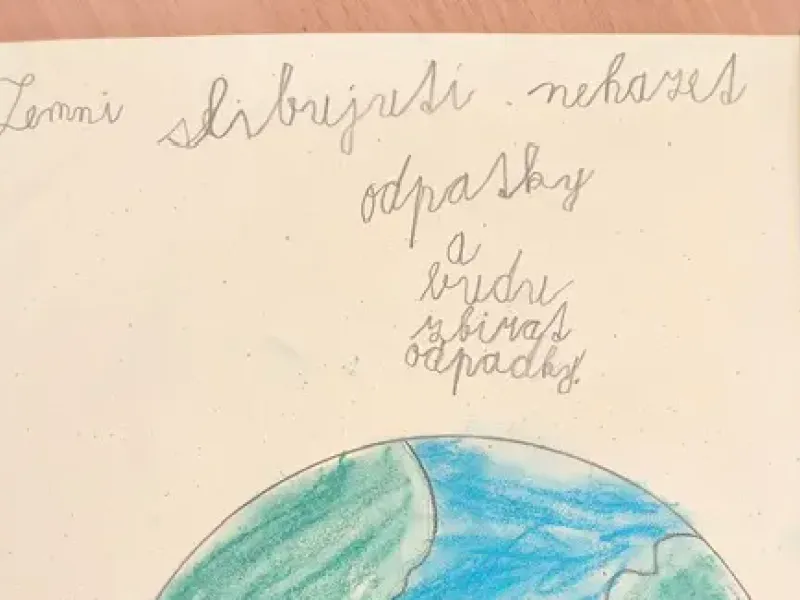 Zemni slibujuti nehazet
odpatky
a
budu
zbirat
odpadky.